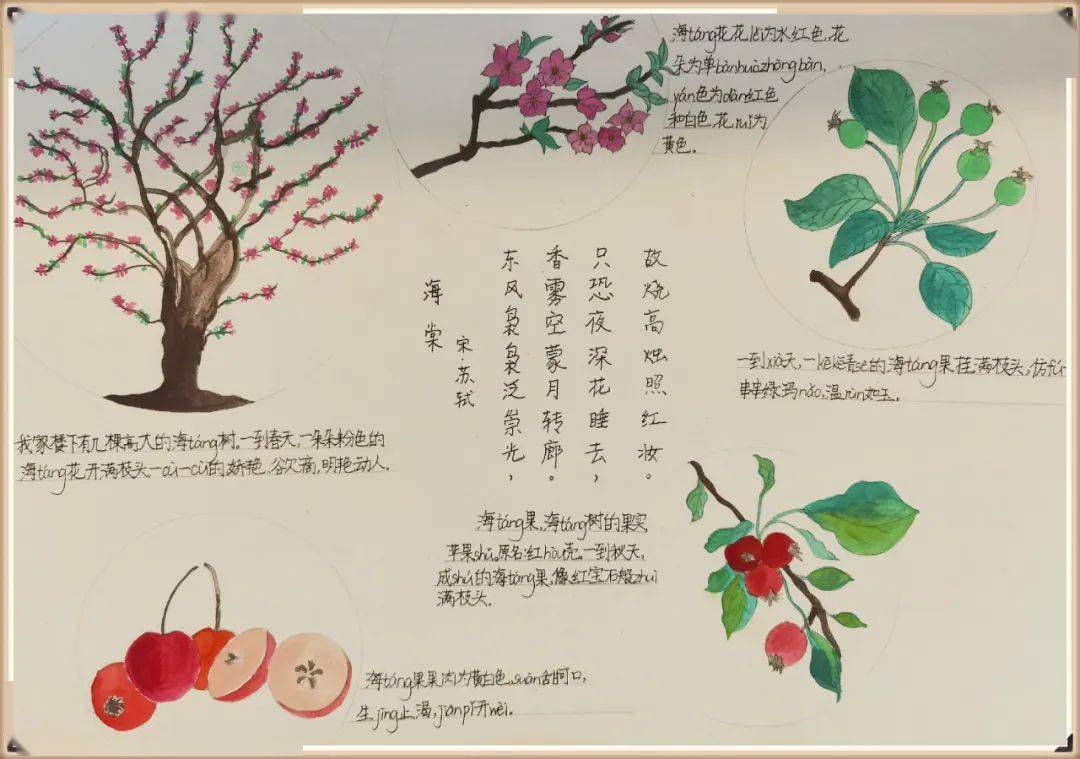 海táng花花lěi为水红色,花
朵为单bànhuòzhòngbàn,
yán色为dàn红色
和白色,花ruǐ为
黄色。
海棠
宋·苏轼
东风袅袅泛崇光,
香雾空蒙月转廊。
只恐夜深花睡去,
故烧高烛照红妆。
一到xià天,一kēkē青sè的海táng果挂满枝头,仿fú
串串绿玛nǎo,温rùn如玉。
我家楼下有几棵高大的海táng树。一到春天,一朵朵粉色的
海táng花开满枝头一cù一cù的娇艳,欲滴,明艳动人。
海táng果,海táng树的果实,
苹果shǔ。原名:红hòu壳。一到秋天,
成shú的海táng果,像红宝石般zhuì
满枝头。
海táng果果肉为黄白色,suān甜可口,
生jīng止渴,jiànpí开wèi。